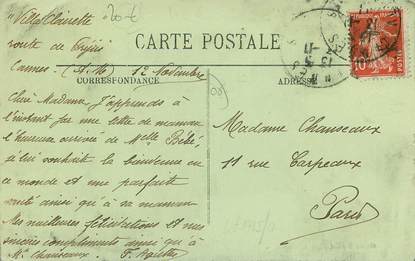 "Villa Clairette
20 €
route de Fréjus
CARTE POSTALE
Cannes (A. M) 12 Novembre
CORRESPONDANCE
ADRESSE
Chère Madame J'apprends à
l'instant par une lettre de maman
l'heureuse arrivée de Melle Bébé,
je lui souhaite la bienvenue en
ce monde et une parfaite
santé ainsi qu'à sa maman
Mes meilleures félicitations et mes
sincères compliments ainsi qu'à
Mr Chanseaux.
Madame Chanseaux
11 rue Carpeaux
Paris
10